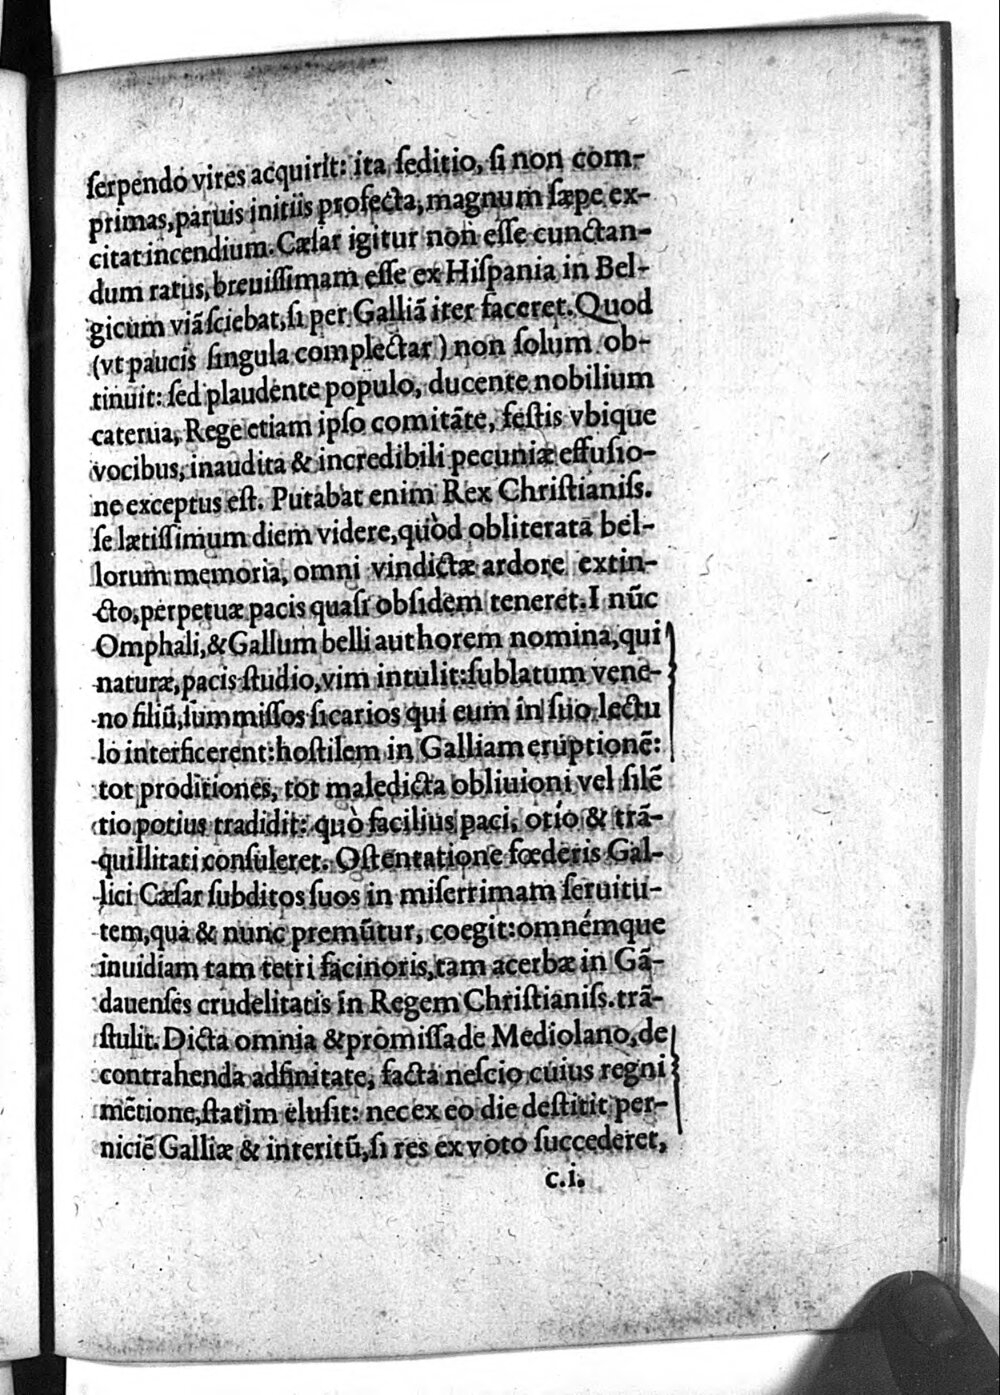 ſerpendo vires acquirit: ita ſeditio, ſi non com-
primas, paruis initiis profecta, magnum ſæpe ex-
citat incendium. Cæſar igitur non eſſe cunctan-
dum ratus, breuiſſimam eſſe ex Hiſpania in Bel-
gicum viã ſciebat, ſi per Galliã iter faceret. Quod
(vt paucis ſingula complectar) non ſolum ob-
tinuit: ſed plaudente populo, ducente nobilium
caterua, Rege etiam ipſo comitãte, feſtis vbique
vocibus, inaudita & incredibili pecuniæ effuſio-
ne exceptus eſt. Putabat enim Rex Chriſtianiſs.
ſe lætiſſimum diem videre, quòd obliterata bel-
lorum memoria, omni vindictæ ardore extin-
cto, perpetuæ pacis quaſi obſidem teneret. I nũc
Omphali, & Gallum belli authorem nomina, qui
naturæ, pacis ſtudio, vim intulit: ſublatum vene-
no filiũ, ſummiſſos ſicarios qui eum in ſuo lectu
lo interficerent: hoſtilem in Galliam eruptionẽ:
tot proditiones, tot maledicta obliuioni vel ſilẽ
tio potius tradidit: quò facilius paci, otio & trã-
quillitati conſuleret. Oſtentatione fœderis Gal-
lici Cæſar ſubditos ſuos in miſerrimam ſeruitu-
tem, qua & nunc premũtur, coegit: omnémque
inuidiam tam tetri facinoris, tam acerbæ in Gã-
dauenſes crudelitatis in Regem Chriſtianiſs. trã-
ſtulit. Dicta omnia & promiſſa de Mediolano, de
contrahenda adfinitate, facta neſcio cuius regni
mẽtione, ſtatim eluſit: nec ex eo die deſtitit per-
niciẽ Galliæ & interitũ, ſi res ex voto ſuccederet,
c.i.